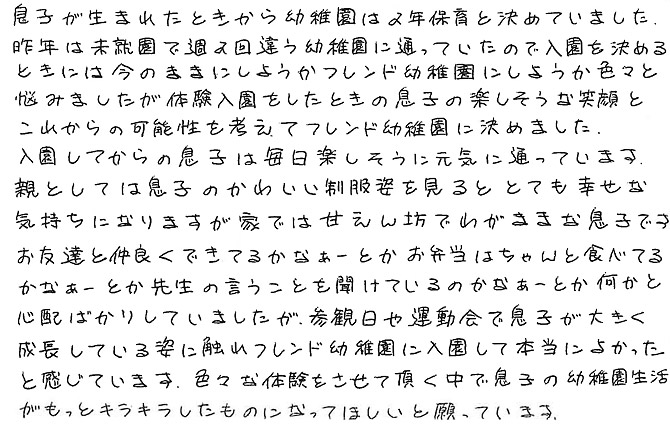 息子が生まれたときから幼稚園は2年保育と決めていました.
昨年は未就園で週2回違う幼稚園に通っていたので入園を決める
ときには今のままにしようかフレンド幼稚園にしようか色々と
悩みましたが体験入園をしたときの息子の楽しそうな笑顔と
これからの可能性を考えてフレンド幼稚園に決めました.
入園してからの息子は毎日楽しそうに元気に通っています.
親としては息子のかわいい制服姿を見ると とても幸せな
気持ちになりますが家では甘えん坊でわがままな息子です
お友達と仲良くできてるかなぁーとか お弁当はちゃんと食べてる
かなぁーとか先生の言うことを聞けているのかなぁーとか何かと
心配ばかりしていましたが.参観日や運動会で息子が大きく
成長している姿に触れフレンド幼稚園に入園して本当によかった
と感じています.色々な体験をさせて頂く中で息子の幼稚園生活
がもっとキラキラしたものになってほしいと願っています.